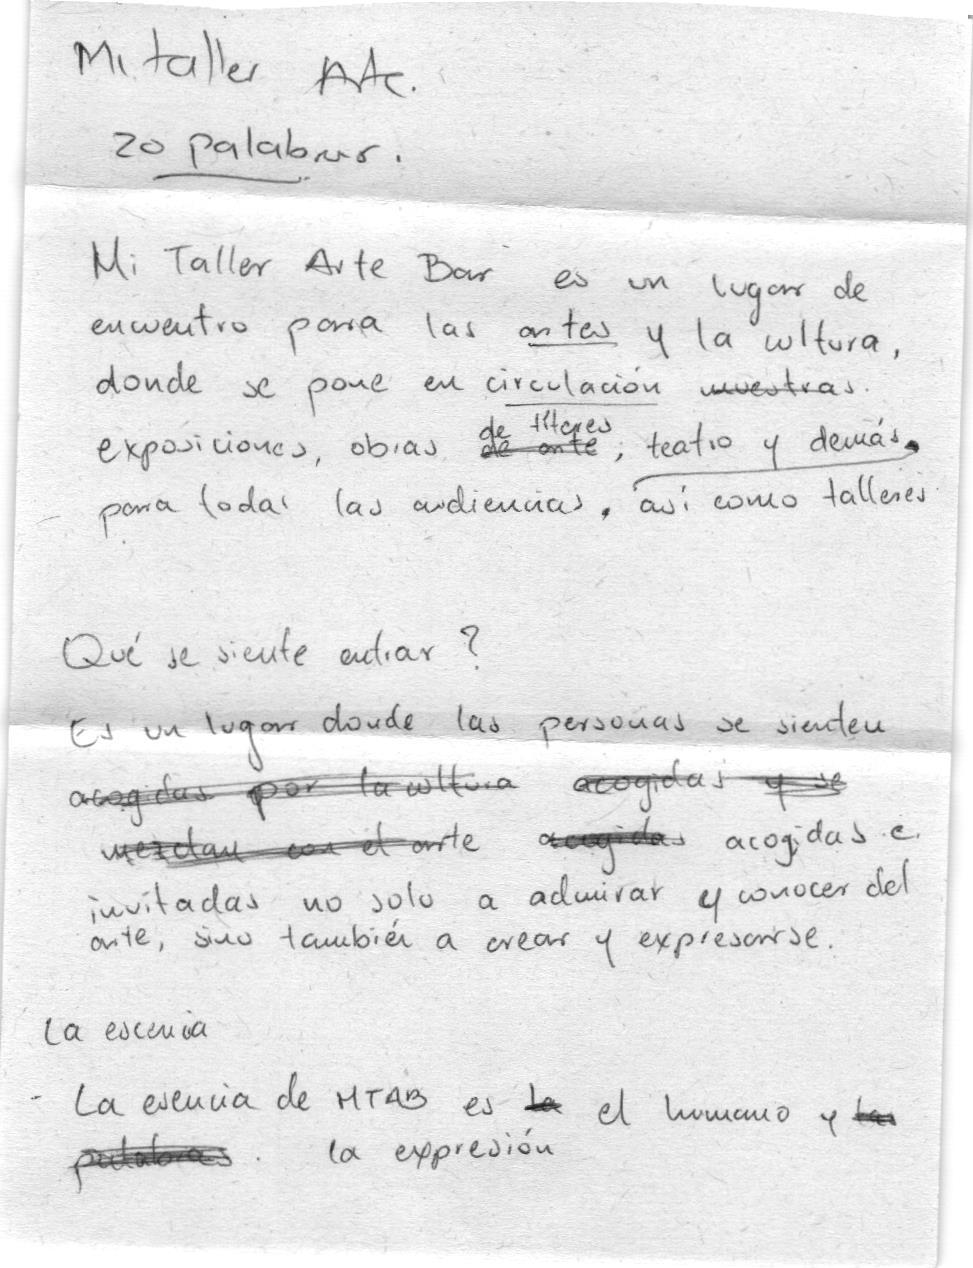 Mi taller Arte.
20 palabras.
Mi Taller Arte Bar es un lugar de
encuentro para las artes y la cultura,
donde se pone en circulación muestras.
de títeres
exposiciones, obras de arte, teatro y demás
para todas las audiencias, así como talleres
Qué se siente entrar?
Es un lugar donde las personas se sienten
acogidas por la cultura acogidas y se
mezclan con el arte acogidas acogidas e
invitadas no solo a admirar y conocer del
arte, sino también a crear y expresarse.
La escencia
- La esencia de MTAB es la el humano y las
palabras. la expresión